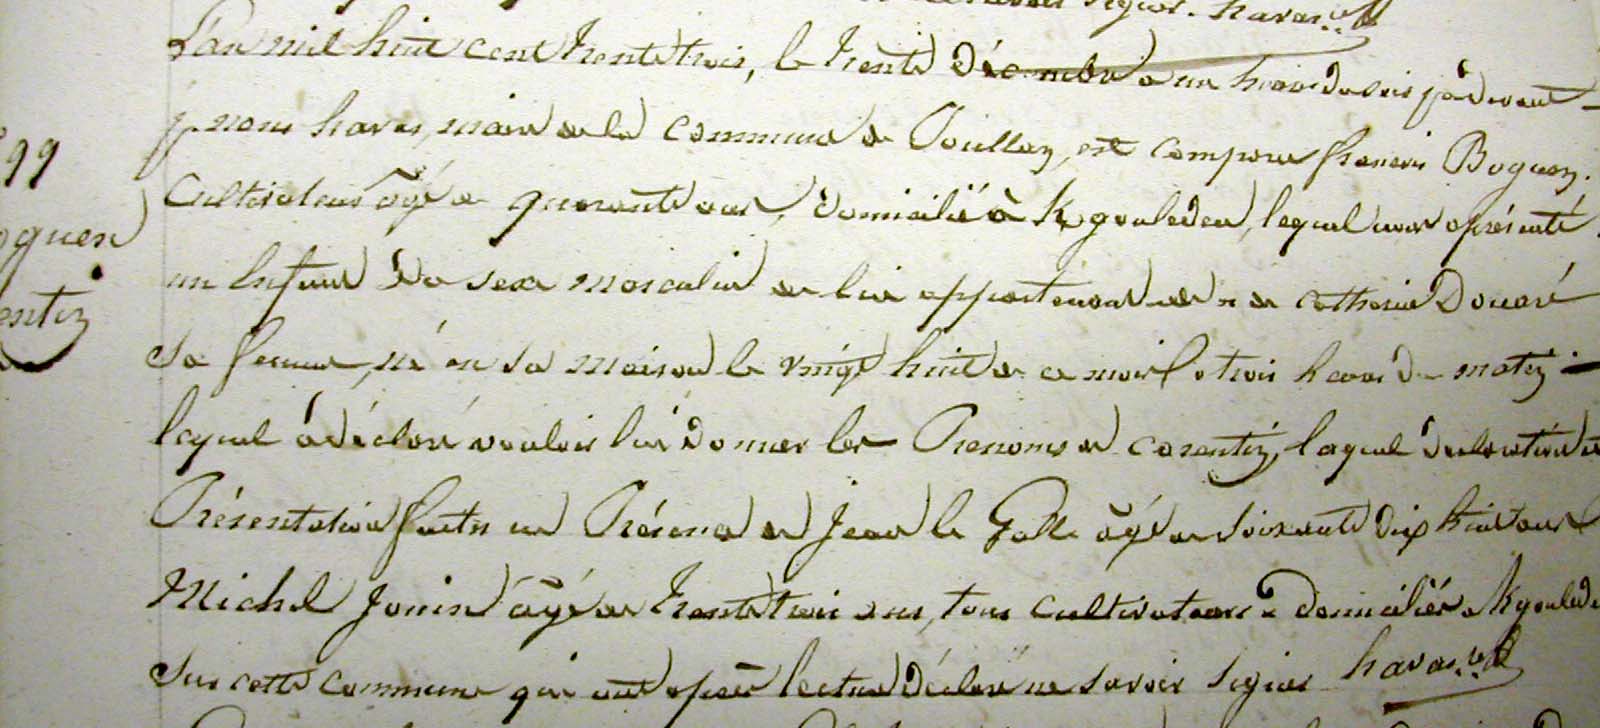 savoir signer. havas
L'an mil huit cent trente trois, le trente décembre a un heure du soir par devant
nous havas, maire de la commune de Poullan, est comparu francois Boguen.
99
Cultivateur âgé de quarante ans, domicilié à Kgouleden, lequel nous a présenté
oguen
un Enfant du sexe masculin de lui appartenant et de catherine Douaré
entin
sa femme, né en sa maison le vingt huit de ce mois a trois heures du matin
lequel a déclaré vouloir lui donner les Prenoms de corentin, laquel declaration et
Présentation faites en Présence de Jean le Goll âgé de soixante dix huit ans
Michel Jonin âgé de trente trois ans, tous cultivateurs domiciliés a Kgouleden
sur cette commune qui ont après lecture déclaré ne savoir signer havas